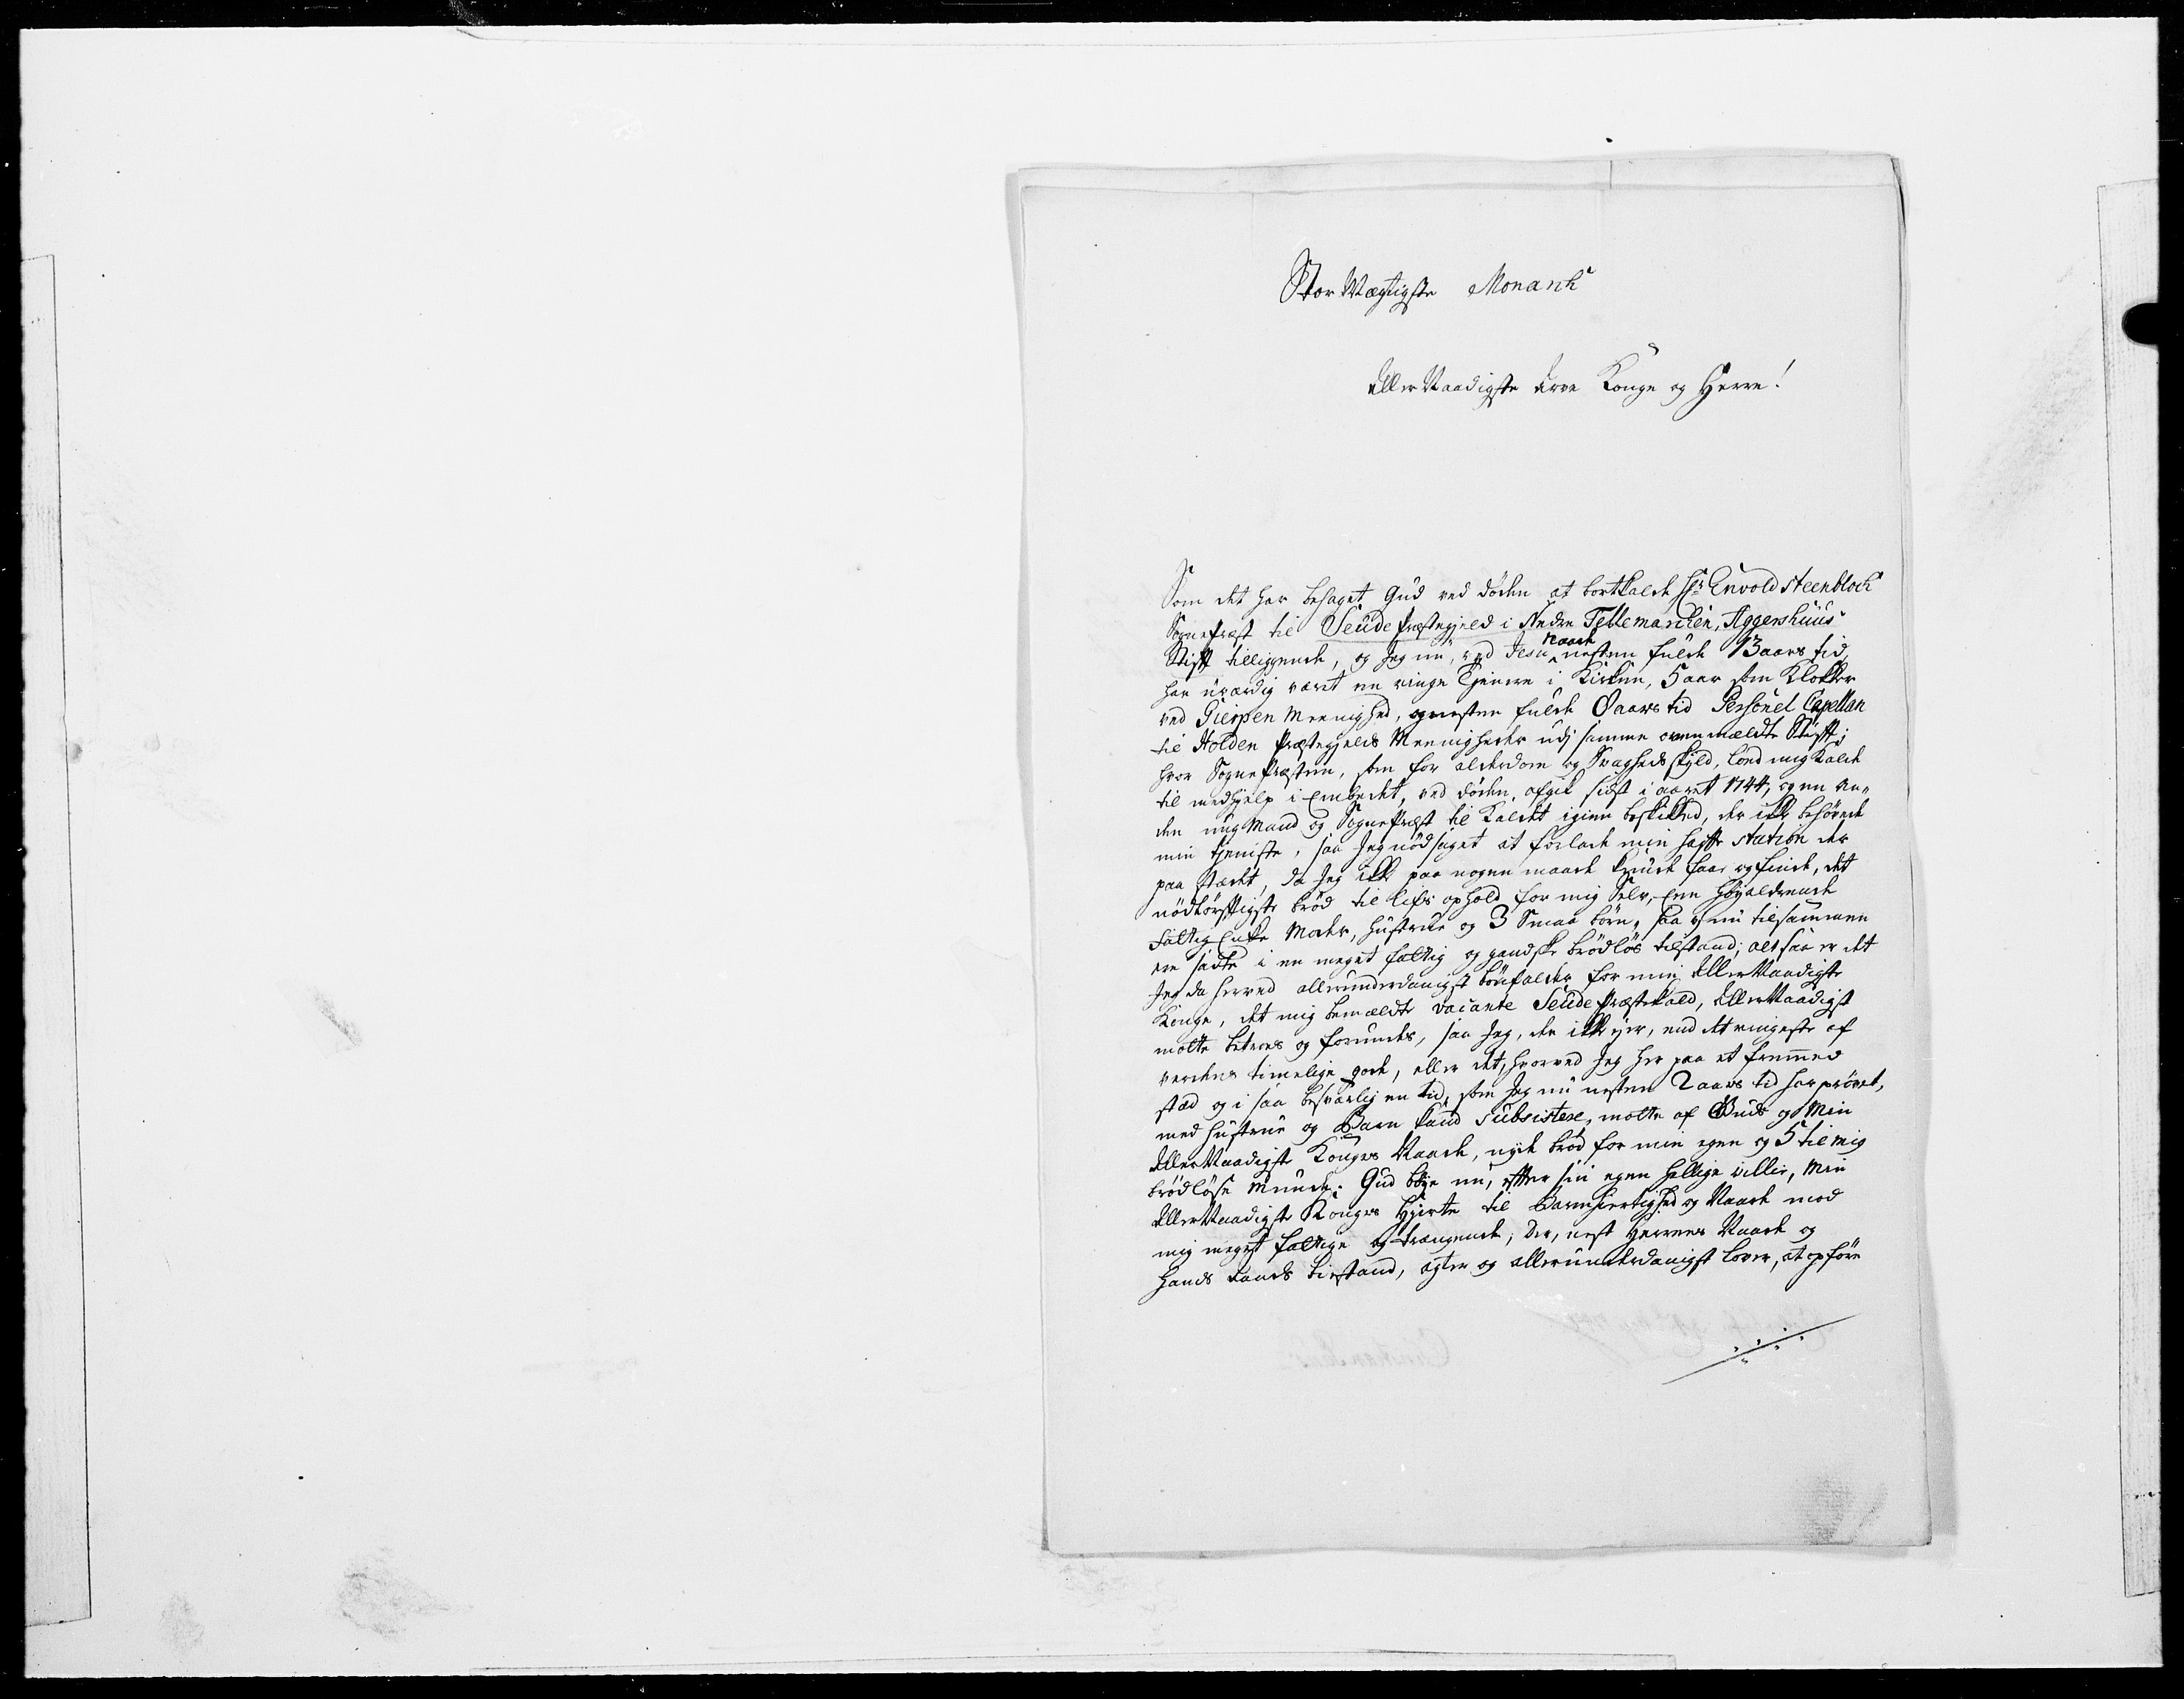 Stor Mægtigste Monarch
Aller Naadigste Arve Konge og Herre!
Som det har behaget Gud ved døden at bortkalde Hr Envold Steenbloch
Sognepræst til Seude Præstegield i Nedre Tellemarchen, Aggershuus
Stift tilliggende, og jeg nu, ved Jesu Naade nesten fulde 13 aars tid,
har uværdig været en ringe Tjenere i Kirken, 5 aar som Klokker
ved Gierpen Meenighed, og nesten fulde 8 aars tid Personel Capellan
til Holden Præstegields Meenigheder udj samme ovenmældte Stift;
hvor Sognepræsten, som for alderdom og Svagheds skyld, lod mig kalde
til medhielp i Embedet, ved døden, afgik sidst i aaret 1744, og en an„
den ung Mand og Sognepræst til Kaldet igien beskikked, der ikke behøvede
min tjeniste, saa Jeg nødsaget at forlade min hafte station der
paa stædet, da Jeg ikke paa nogen maade kunde faae og finde, det
nødtørftigste brød til lifs ophold for mig Selv, Een høyaldrende
fattig Enke Moder, Hustrue og 3 Smaa børn, saa vj nu tilsammen
ere sadte i en meget fattig og gandske brødløs tilstand; altsaa er det
Jeg da herved allerunderdanigst bønfalder for min AllerNaadigste
Konge, det mig bemældte vacante Seude Præstekald, AllerNaadigst
motte betroes og forundes, saa Jeg, der ikke ejer, end det ringeste af
verdens timelige gode, eller det, hvorved Jeg her paa et fremmed
stæd og i saa besværlig en tid, som Jeg nu nesten 2 aars tid har prøvet,
med Hustrue og Barn kand subsistere, motte af Guds og Min
AllerNaadigste Konges Naade, nyde brød for min egen og 5 til mig
brødløse Munde; Gud bøye nu, efter sin egen hellige villie, Min
AllerNaadigste Konges Hjerte til Barmhiertighed og Naade mod
mig meget fattige og trængende, Der, nest Herrens Naade og
hands Aands bistand, agter og allerunderdanigst lover, at opføre